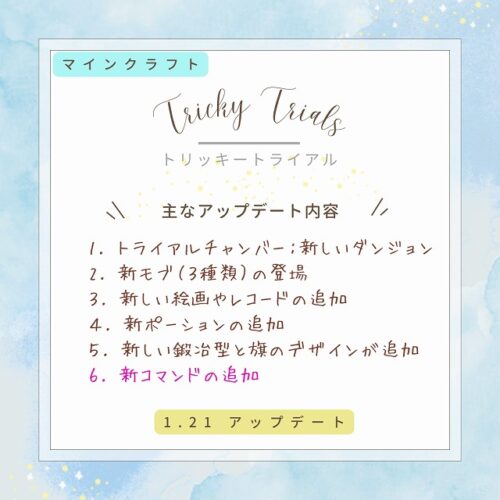 マインクラフト
Tricky Trials
トリッキートライアル
主なアップデート内容
1. トライアルチャンバー;新しいダンジョン
2. 新モブ(3種類)の登場
3. 新しい絵画やレコードの追加
4. 新ポーションの追加
5. 新しい鍛冶型と旗のデザインが追加
6. 新コマンドの追加
1.21 アップデート